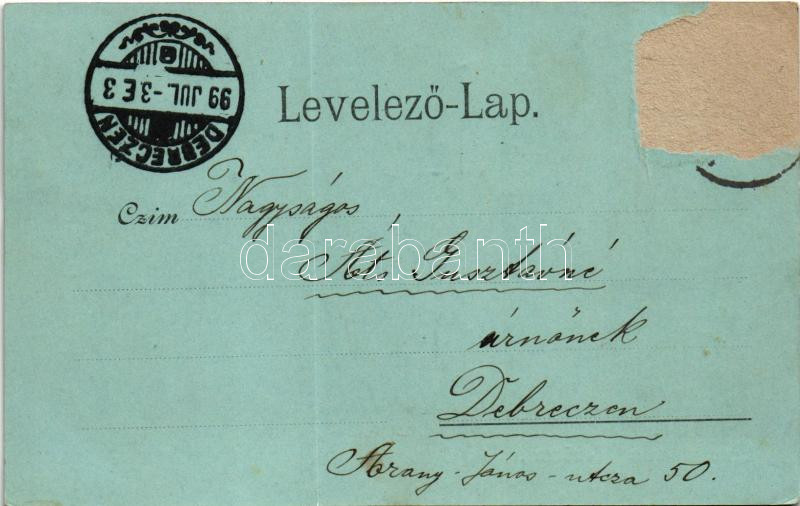 DEBRECZEN
99 JUL.-3. E 3
Levelező-Lap.
Czim Nagyságos
Áts Gusztávné
úrnőnek
Debreczen
Arany-János-utcza 50.
darabanth